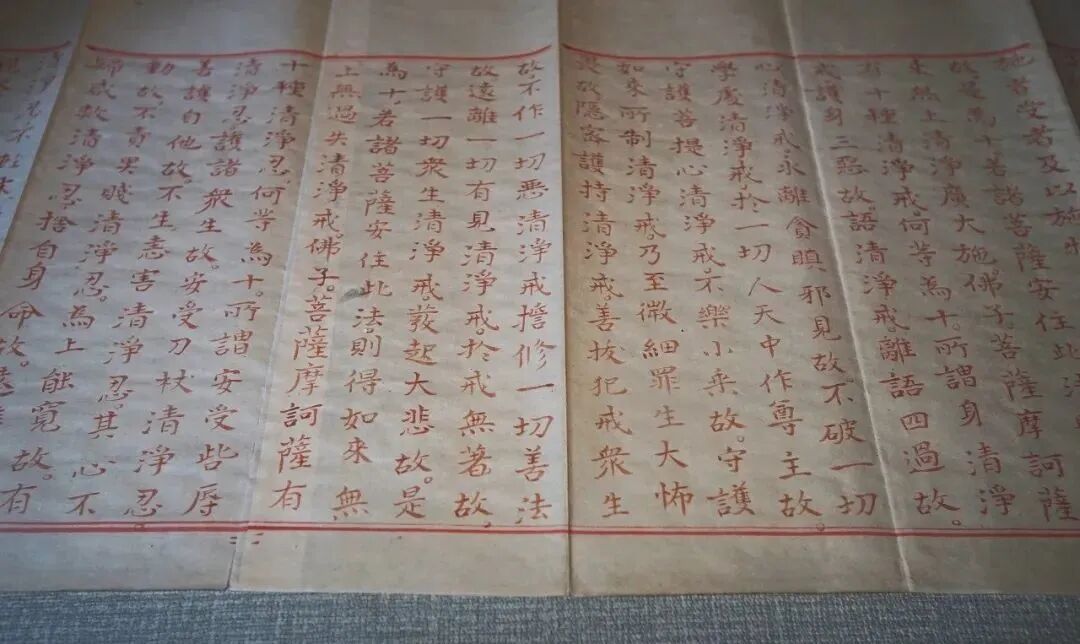 施者受者及以施
故。是為十若諸菩薩安住此法
來無上清淨廣大施。佛子。菩薩摩訶薩
有十種清淨戒。何等為十。所謂身清淨
戒護身三惡故。語清淨戒。離語四過故。
心清淨戒永離貪瞋邪見故。不破一切
學處清淨戒於一切人天中作尊主故。
守護菩提心清淨戒。不樂小乘故。守護
如來所制清淨戒。乃至微細罪生大怖
畏故隱密護持清淨戒。善拔犯戒衆生
故不作一切惡清淨戒誓修一切善法
故遠離一切有見清淨戒。於戒無著故,
守護一切衆生清淨戒。發起大悲故。是
為十。若諸菩薩安住此法。則得如來無
上無過失清淨戒。佛子。菩薩摩訶薩有
十種清淨忍何等為十。所謂安受呰辱
清淨忍護諸衆生故。安受刀杖清淨忍。
善護自他故。不生恚害清淨忍。其心不
動故。不責卑賤清淨忍。為上能寬故。有
歸咸救清淨忍捨自身命故。遠離